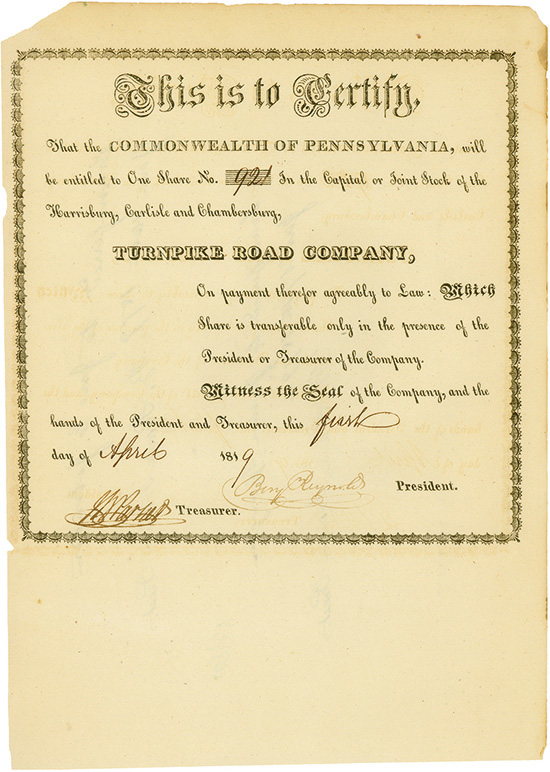 This is to Certify,
That the COMMONWEALTH OF PENNSYLVANIA, will
be entitled to One Share No. 921 In the Capital or Joint Stock of the
Harrisburg, Carlisle and Chambersburg,
TURNPIKE ROAD COMPANY,
On payment therefor agreeably to Law: Which
Share is transferable only in the presence of the
President or Treasurer of the Company.
Witness the Seal of the Company, and the
hands of the President and Treasurer, this first
day of April 1819
Benj Reynolds President.
Treasurer.